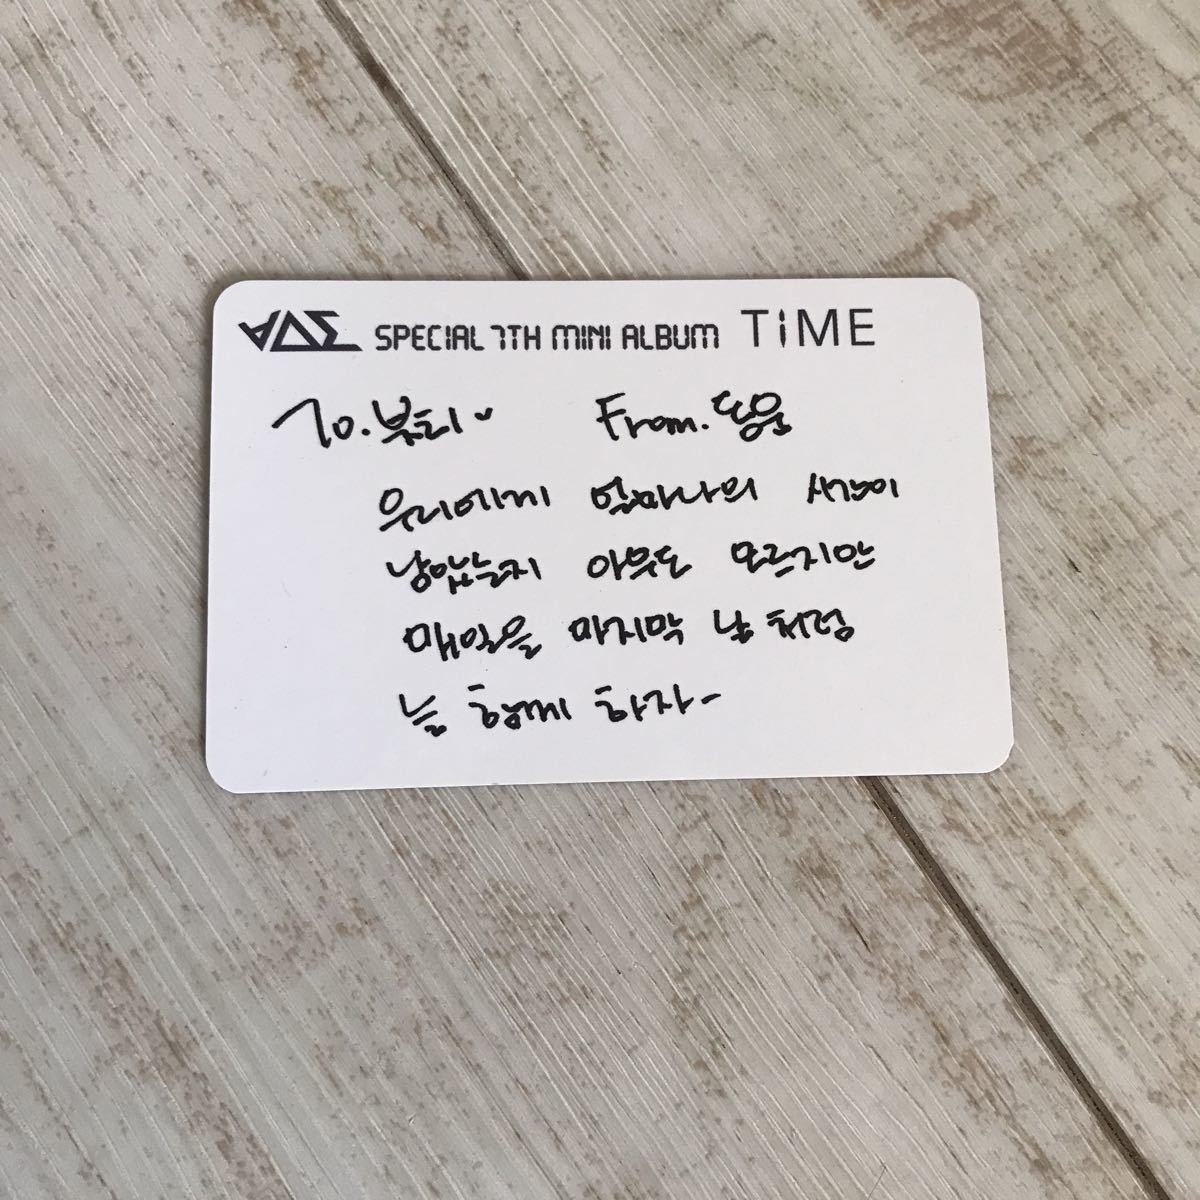 SPECIAL 7TH MINI ALBUM TiME
To.뷰티 From.동운
우리에게 얼마나의 시간이
남았는지 아무도 모르지만
매일을 마지막 날 처럼
늘 함께 하자~